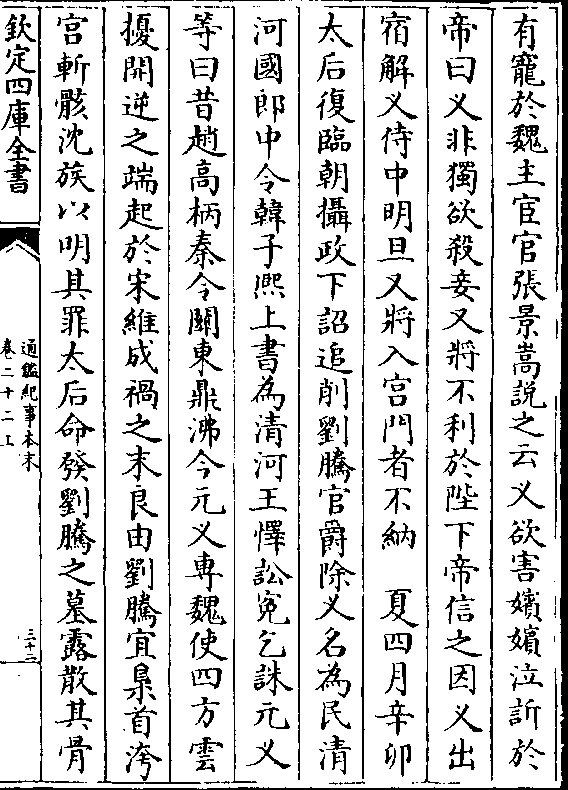 有寵於魏主宦官張景嵩説之云义欲害嬪嬪泣訴於
帝曰义非獨欲殺妾又將不利於陛下帝信之因义出
宿解义侍中明旦义將入宫門者不納　夏四月辛卯
太后復臨朝攝政下詔追削劉騰官爵除义名為民清
河國郎中令韓子熈上書為清河王懌訟寃乞誅元义
等曰昔趙高柄秦令關東鼎沸今元义専魏使四方雲
擾開逆之端起於宋維成禍之末良由劉騰宜梟首洿
宫斬骸沈族以明其罪太后命發劉騰之墓露散其骨
欽定四庫全書
通鑑紀事本末
卷二十二上
三十二